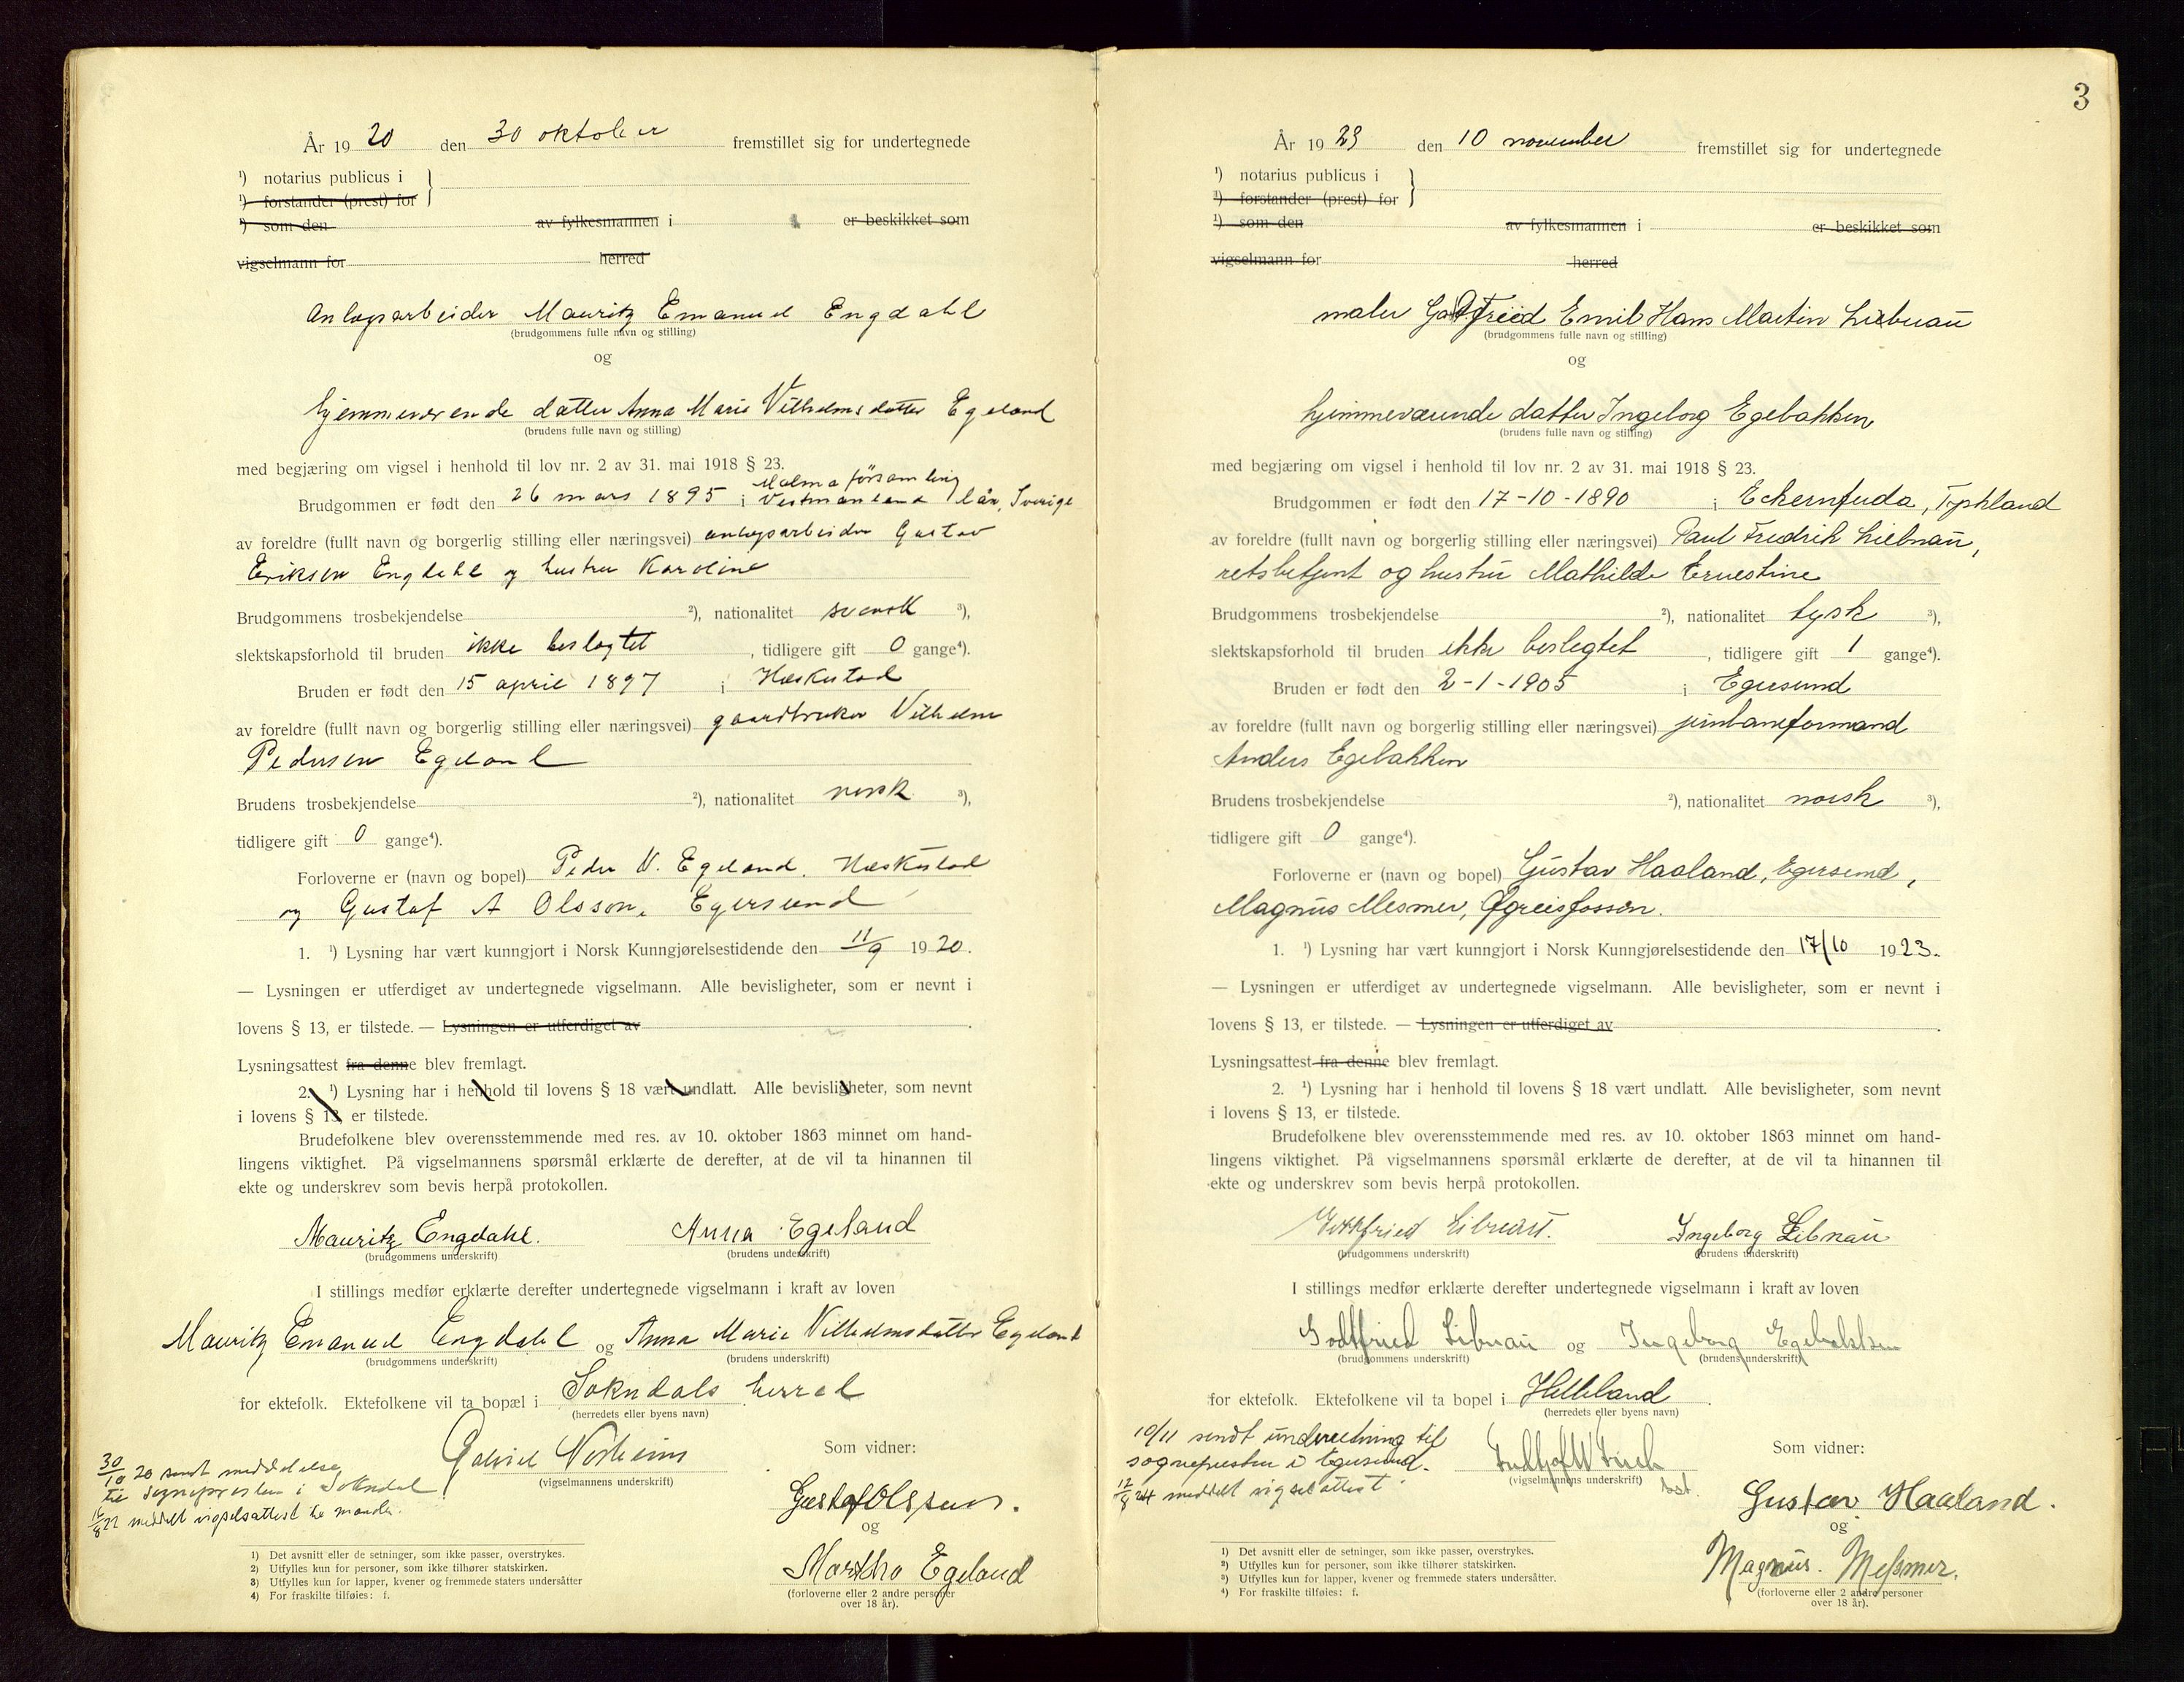 År 1920 den 30 oktober fremstillet sig for undertegnede
¹) notarius publicus i
¹) forstander (prest) for
¹) som den av fylkesmannen i er beskikket som
vigselmann for herred
Anlegsarbeider Mauritz Emanuel Engdahl
(brudgommens fulle navn og stilling)
og
hjemmeværende datter Anna Marie Vilhelmsdatter Egeland
(brudens fulle navn og stilling)
med begjæring om vigsel i henhold til lov nr. 2 av 31. mai 1918 § 23.
Malma församling
Brudgommen er født den 26 mars 1895 i Vestmanland län, Sverige
av foreldre (fullt navn og borgerlig stilling eller næringsvei) anlegsarbeider Gustav
Eriksen Engdahl og hustru Karoline
Brudgommens trosbekjendelse ²), nationalitet svensk ³),
slektskapsforhold til bruden ikke beslegtet, tidligere gift 0 gange⁴).
Bruden er født den 15 april 1897 i Heskestad
av foreldre (fullt navn og borgerlig stilling eller næringsvei) gaardbruker Vilhelm
Pedersen Egeland
Brudens trosbekjendelse ²), nationalitet norsk ³),
tidligere gift 0 gange⁴).
Forloverne er (navn og bopel) Peder V. Egeland, Heskestad
og Gustaf A Olsson, Egersund
1. ¹) Lysning har vært kunngjort i Norsk Kunngjørelsestidende den 11/9 1920.
— Lysningen er utferdiget av undertegnede vigselmann. Alle bevisligheter, som er nevnt i
lovens § 13, er tilstede. — Lysningen er utferdiget av .
Lysningsattest fra denne blev fremlagt.
2. ¹) Lysning har i henhold til lovens § 18 vært undlatt. Alle bevisligheter, som nevnt
i lovens § 13 er tilstede.
Brudefolkene blev overensstemmende med res. av 10. oktober 1863 minnet om hand-
lingens viktighet. På vigselmannens spørsmål erklærte de derefter, at de vil ta hinannen til
ekte og underskrev som bevis herpå protokollen.
Mauritz Engdahl. Anna Egeland
(brudgommens underskrift) (brudens underskrift)
I stillings medfør erklærte derefter undertegnede vigselmann i kraft av loven
Mauritz Emanuel Engdahl og Anna Marie Vilhelmsdatter Egeland
(brudgommens underskrift) (brudens underskrift)
for ektefolk. Ektefolkene vil ta bopæl i Sokndals herred
(herredets eller byens navn)
Som vidner:
30/10 20 sendt meddelelse
til sognepresten i Sokndal
16/8 22 meddelt vigselsattest til manden.
Gabriel
(vigselmannens underskrift)
Gustaf Olsson.
og
Martha Egeland
(forloverne eller 2 andre personer
over 18 år).
1) Det avsnitt eller de setninger, som ikke passer, overstrykes.
2) Utfylles kun for personer, som ikke tilhører statskirken.
3) Utfylles kun for lapper, kvener og fremmede staters undersåtter
4) For fraskilte tilføies: f.
3
År 1923 den 10 november fremstillet sig for undertegnede
¹) notarius publicus i
¹) forstander (prest) for
¹) som den av fylkesmannen i er beskikket som
vigselmann for herred
maler Gottfried Emil Hans Martin Liebnau
(brudgommens fulle navn og stilling)
og
hjemmeværende datter Ingeborg Egebakken
(brudens fulle navn og stilling)
med begjæring om vigsel i henhold til lov nr. 2 av 31. mai 1918 § 23.
Brudgommen er født den 17-10-1890 i Tyskland
av foreldre (fullt navn og borgerlig stilling eller næringsvei) Paul Fredrik Liebnau,
retsbetjent og hustru Mathilde Ernestine
Brudgommens trosbekjendelse ²), nationalitet tysk ³),
slektskapsforhold til bruden ikke beslegtet, tidligere gift 1 gange⁴).
Bruden er født den 2-1-1905 i Egersund
av foreldre (fullt navn og borgerlig stilling eller næringsvei) jernbaneformand
Anders Egebakken
Brudens trosbekjendelse ²), nationalitet norsk ³),
tidligere gift 0 gange⁴).
Forloverne er (navn og bopel) Gustav Haaland, Egersund,
Magnus Mesmer, Øgreisfossen.
1. ¹) Lysning har vært kunngjort i Norsk Kunngjørelsestidende den 17/10 1923.
— Lysningen er utferdiget av undertegnede vigselmann. Alle bevisligheter, som er nevnt i
lovens § 13, er tilstede. — Lysningen er utferdiget av .
Lysningsattest fra denne blev fremlagt.
2. ¹) Lysning har i henhold til lovens § 18 vært undlatt. Alle bevisligheter, som nevnt
i lovens § 13, er tilstede.
Brudefolkene blev overensstemmende med res. av 10. oktober 1863 minnet om hand-
lingens viktighet. På vigselmannens spørsmål erklærte de derefter, at de vil ta hinannen til
ekte og underskrev som bevis herpå protokollen.
Gottfried Libnau. Ingeborg Libnau
(brudgommens underskrift) (brudens underskrift)
I stillings medfør erklærte derefter undertegnede vigselmann i kraft av loven
Godtfried Libnau og Ingeborg Egebakken
(brudgommens underskrift) (brudens underskrift)
for ektefolk. Ektefolkene vil ta bopel i Helleland.
(herredets eller byens navn)
Som vidner:
10/11 sendt underretning til
sognepresten i Egersund.
12/8 24 meddelt vigselattest.
(vigselmannens underskrift)
Gustav Haaland.
og
Magnus. Messmer.
(forloverne eller 2 andre personer
over 18 år).
¹) Det avsnitt eller de setninger, som ikke passer, overstrykes.
²) Utfylles kun for personer, som ikke tilhører statskirken.
³) Utfylles kun for lapper, kvener og fremmede staters undersåtter.
⁴) For fraskilte tilføies: f.